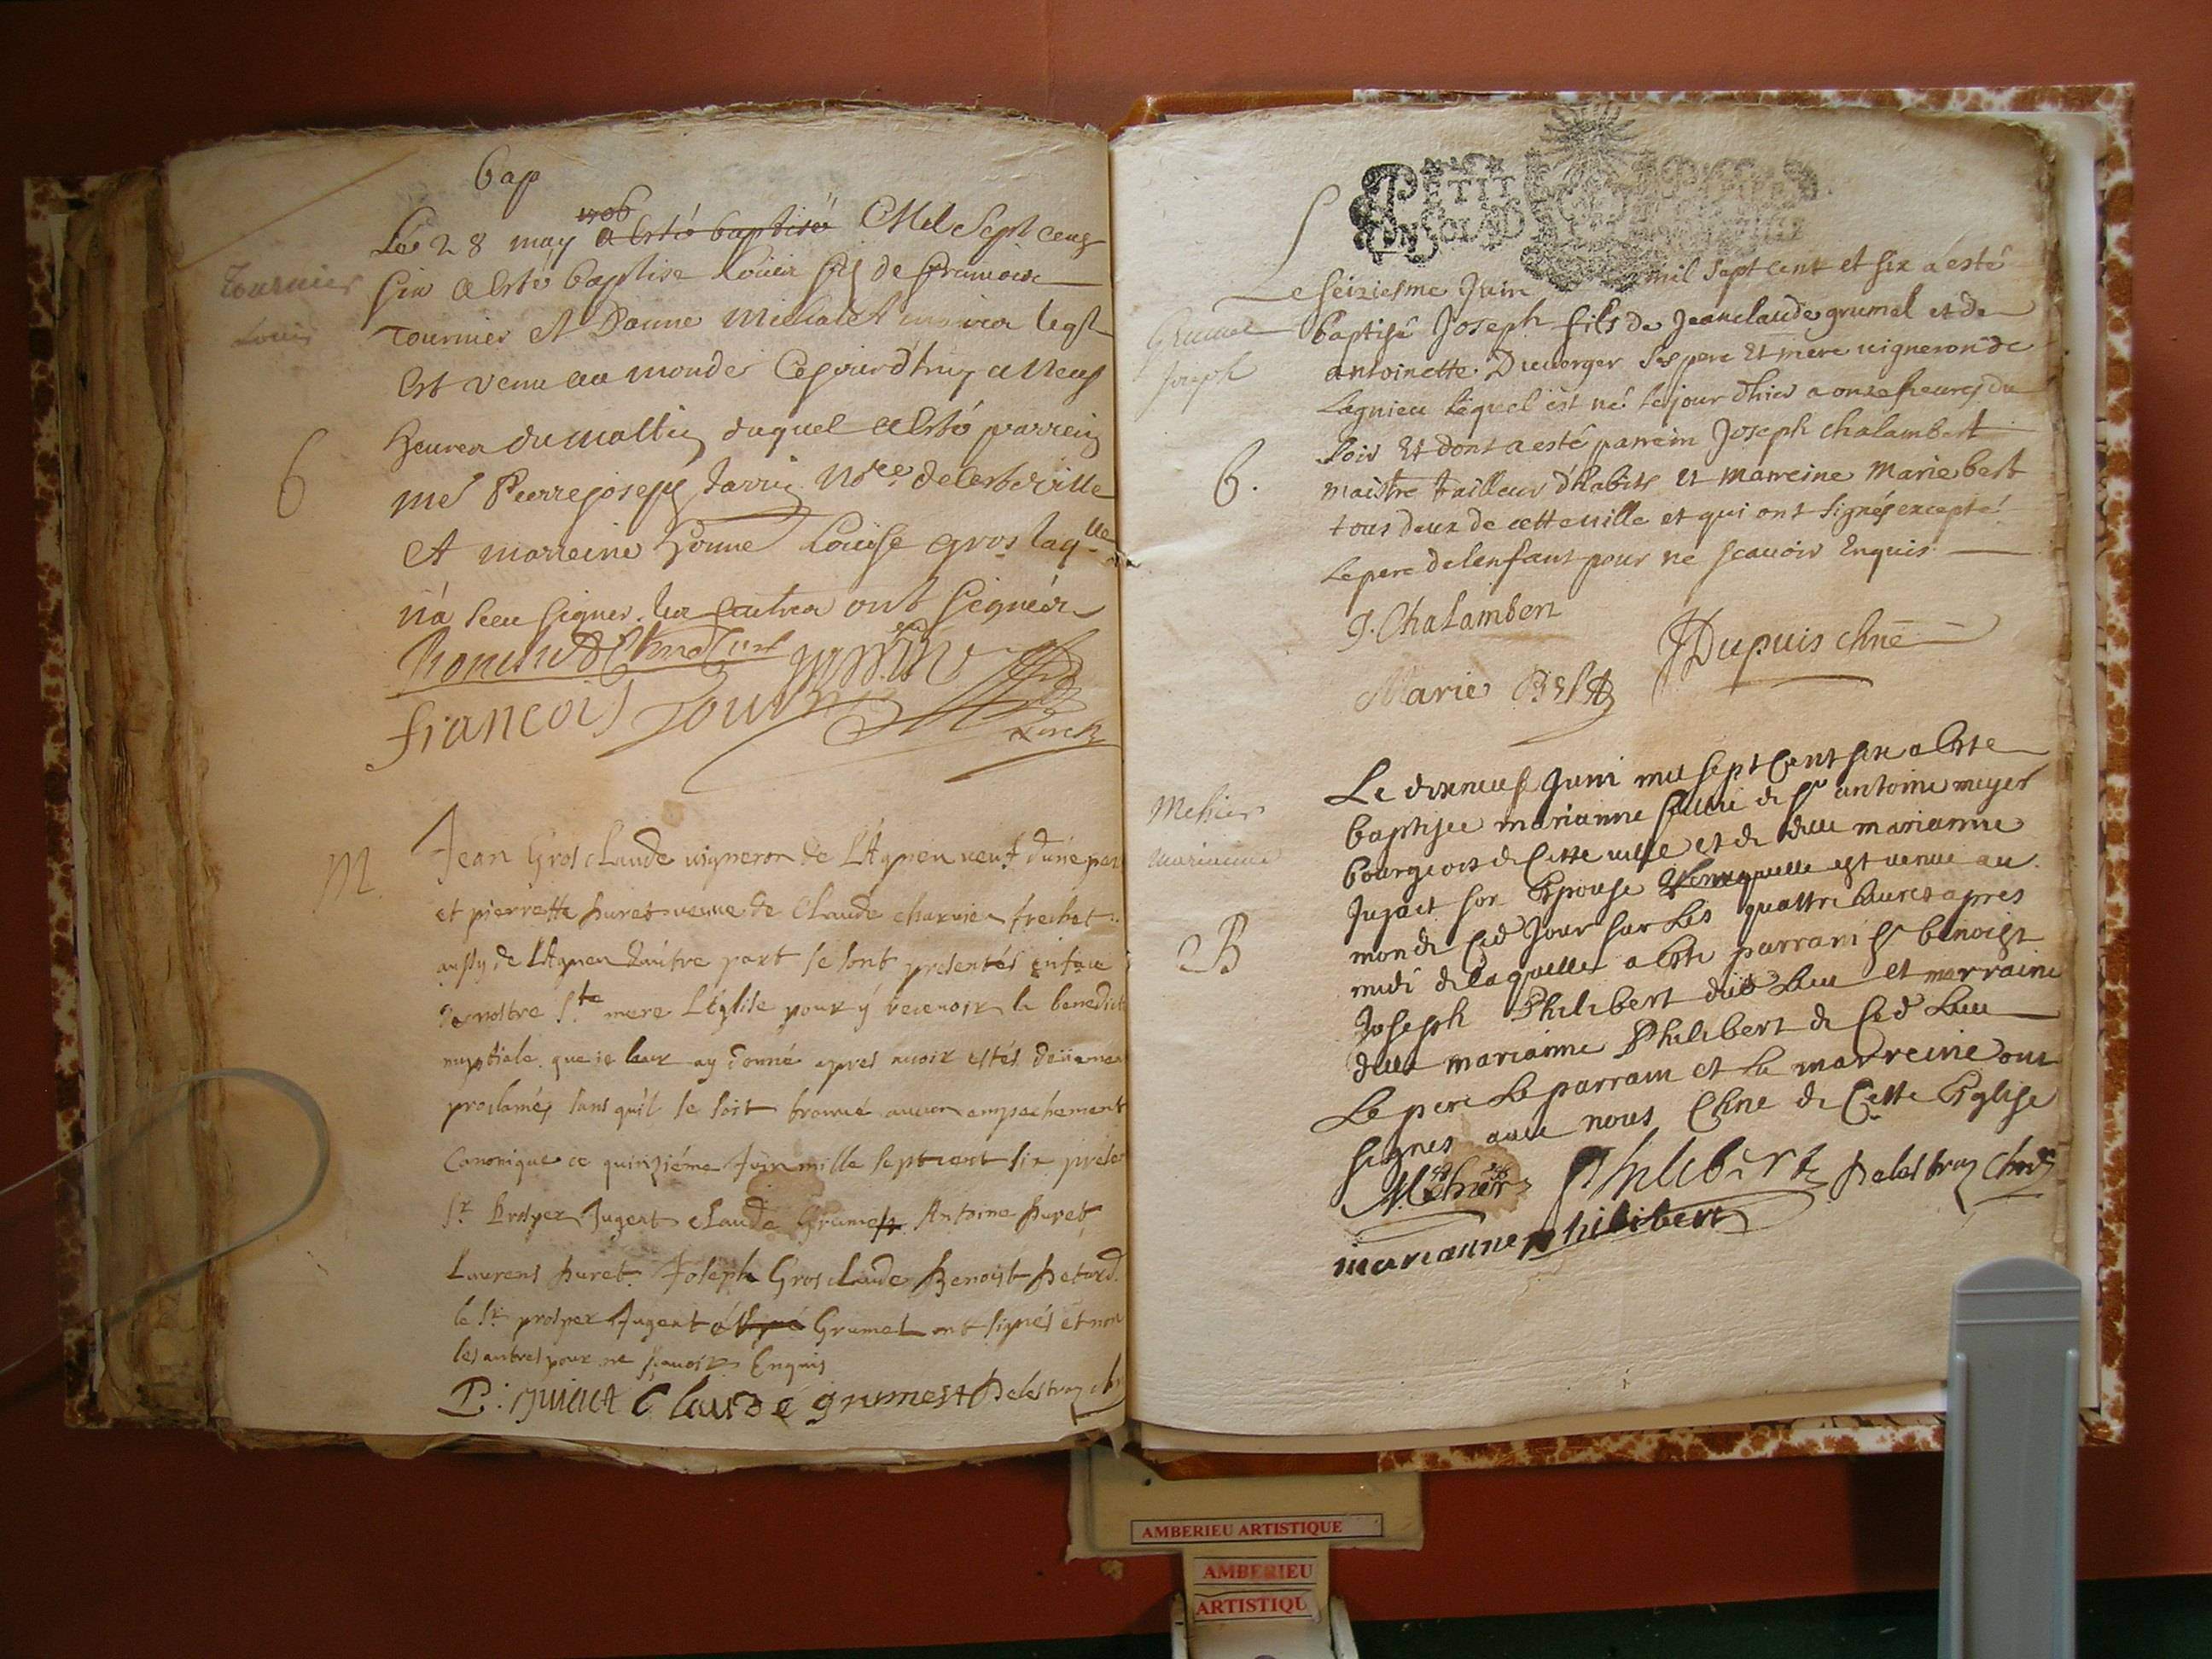 bap
1706
Le 28 may a esté baptisé Mil Sept cens
six a esté baptise Louis fils de francois
Tournier et Danne Michalet mariea leql
Est venu au monde Cejourdhuy a neuf
heures du mattin duquel a esté parrein
me Pierre joseph Jarrin Nore de cette ville
Et marreine honne Louise gros laqlle
n'a sceu signer les autres ont signés
francois Tournier
Tournier
Louis
B
M
Jean Gros claude vigneron de LAgneu veuf dune part
et pierrette huret veuve de Claude charvier frechet
aussy de LAgneu dautre part se sont presentés en face
de nostre Ste mere LEglise pour y recevoir la benedict
nuptiale que je leur ay donné apres avoir estés düemen
proclamés sans quil se soit trouvé aucun empechement
Canonique ce quinziéme Juin mille sept cent six presen
Sr Prosper Jugent Claude Grumel Antoine huret
Laurens huret Joseph Gros claude Benoist Betard
le Sr prosper Jugent et Grumel ont signés et non
les autres pour ne sçavoir Enquis
P: Claude grumest Delestraz
PETIT
EN SOLAD
Grumel
Joseph
B.
Le seiziesme Juin mil sept cent et six a esté
baptisé Joseph fils de Jeanclaude grumel et de
antoinette Duverger ses pere Et mere vigneron de
Lagnieu lequel est né le jour dhier a onze heures du
soir Et dont a esté parrein Joseph chalambert
maistre tailleur d'habits et marreine Marie best
tous deux de cette ville et qui ont signés excepté
Le pere de lenfant pour ne scavoir Enquis
J. Chalambert
JDupuis chne
Marie Best
Mehier
Marianne
B
Le dixneuf Juin mil sept Cent six a Este
baptisee marianne fillie de Sr antoine meyer
bourgeois de Cette ville et de dlle marianne
Jujat son Epouse laquelle est venue au
monde Ced Jour sur Les quattre heures apres
midi de laquelle a esté parrain Sr benoist
Joseph Philibert dud Lieu et marraine
dlle marianne Philibert de Ced Lieu
Le pere Le parrain et La marreine ont
signes avec nous Chne de Cette Eglise
Mehier Philibert Delestraz chne
marianne philibert
AMBERIEU ARTISTIQUE
AMBERIEU
ARTISTIQU